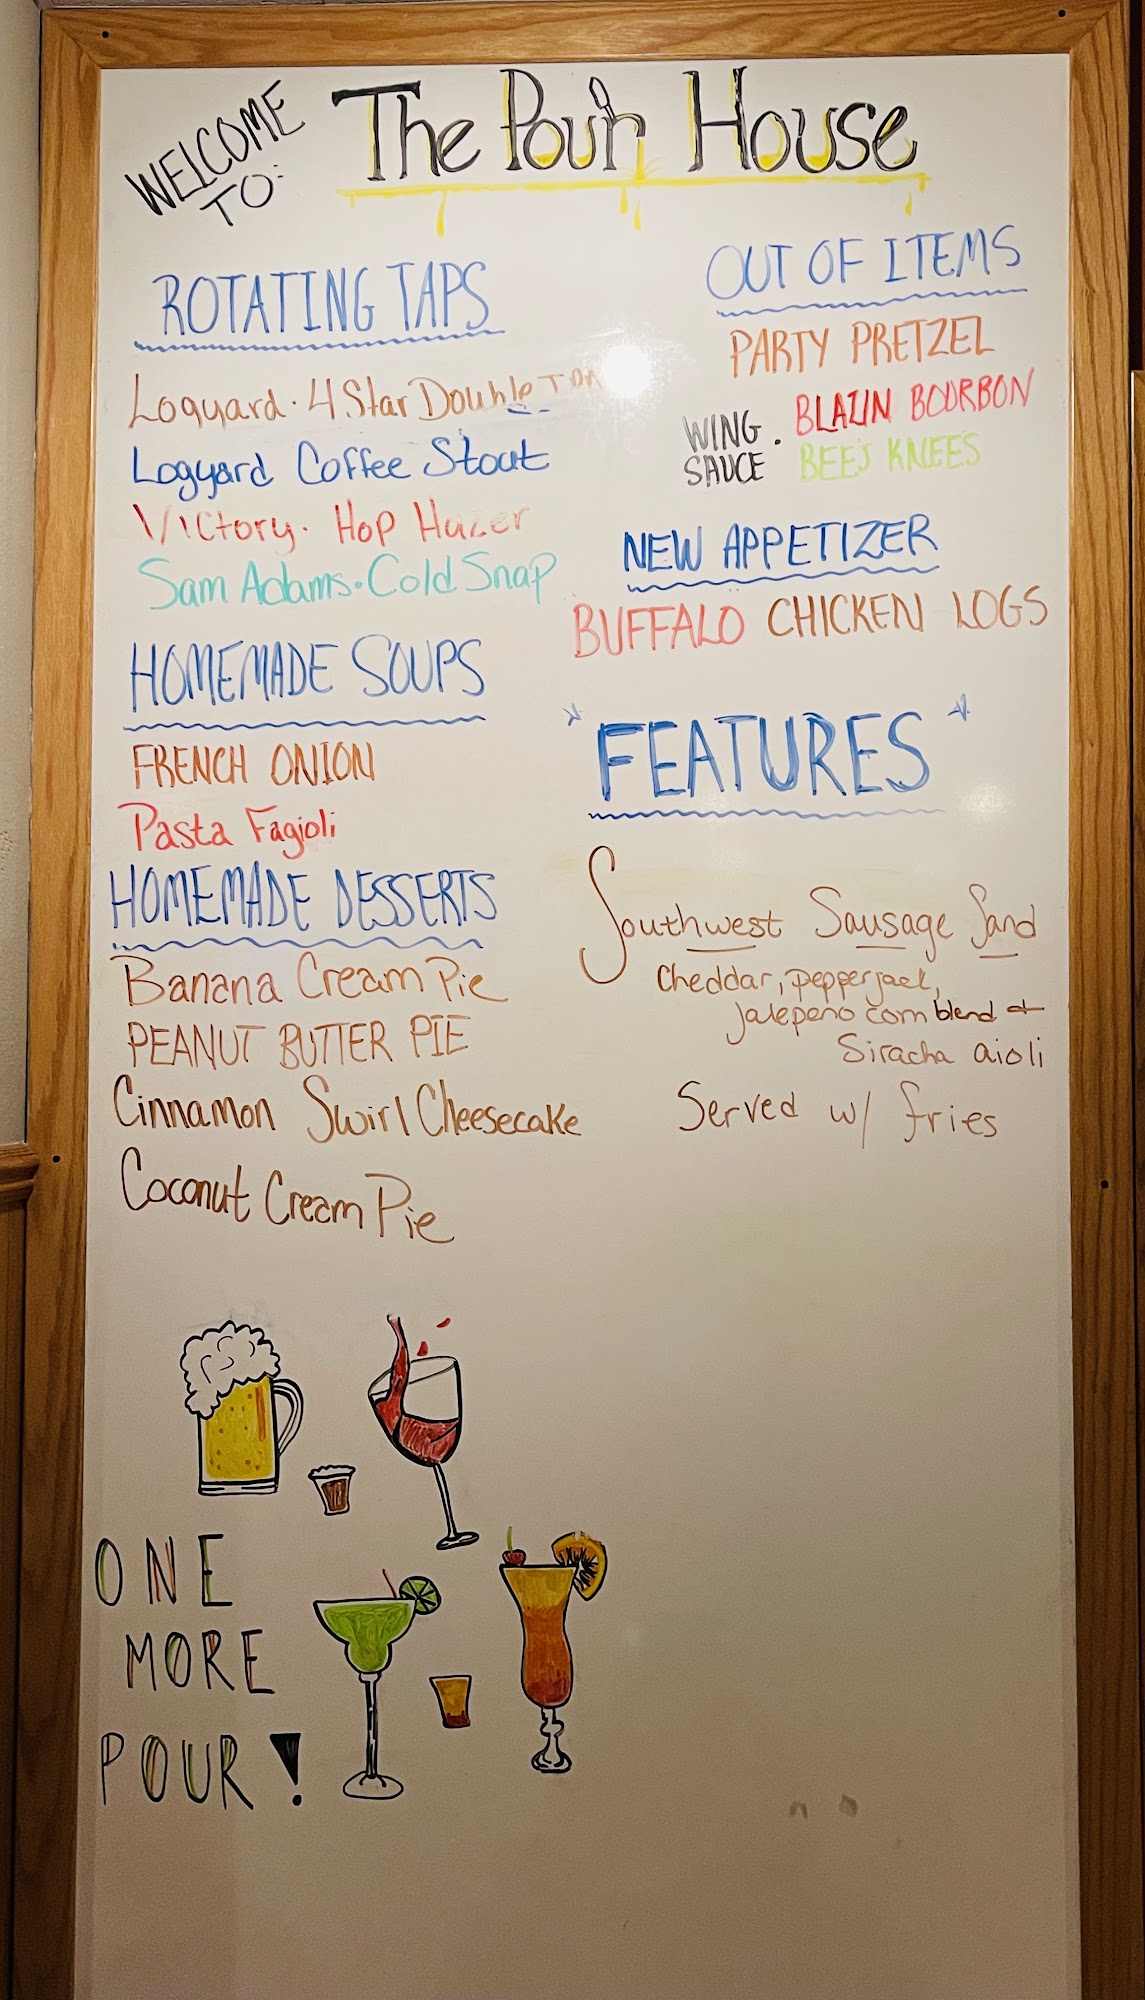 WELCOME
TO:
The Pour House
ROTATING TAPS
Logyard · 4 Star Double
Logyard Coffee Stout
Victory · Hop Hazer
Sam Adams · Cold Snap
HOMEMADE SOUPS
FRENCH ONION
Pasta Fagioli
HOMEMADE DESSERTS
Banana Cream Pie
PEANUT BUTTER PIE
Cinnamon Swirl Cheesecake
Coconut Cream Pie
OUT OF ITEMS
PARTY PRETZEL
WING SAUCE · BLAZIN BOURBON
BEE'S KNEES
NEW APPETIZER
BUFFALO CHICKEN LOGS
FEATURES
Southwest Sausage Sand
Cheddar, pepperjack,
Jalepeno corn blend +
Siracha aioli
Served w/ fries
ONE
MORE
POUR!